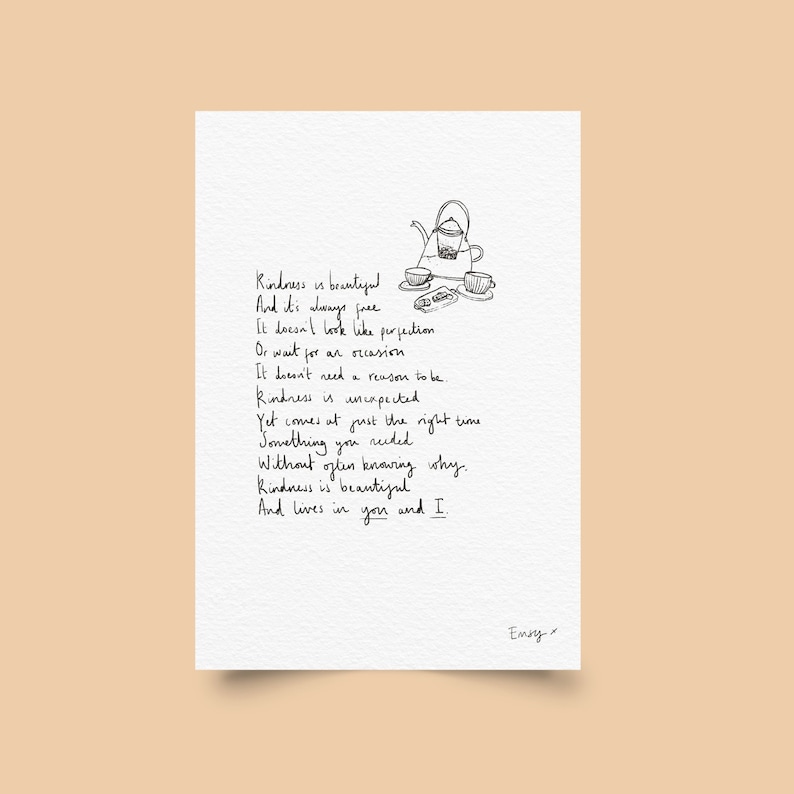 Kindness is beautiful
And it's always free
It doesn't look like perfection
Or wait for an occasion
It doesn't need a reason to be.
Kindness is unexpected
Yet comes at just the right time
Something you needed
Without often knowing why.
Kindness is beautiful
And lives in you and I.
Emsy x